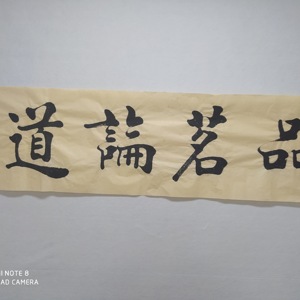 品茗論道
MI NOTE 8
AD CAMERA